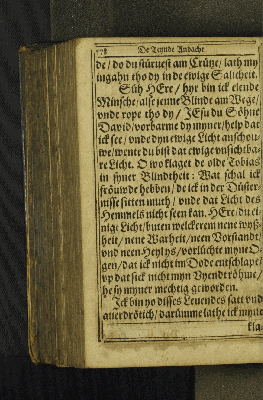 178 De Teynde Andacht.
de / do du stürvest am Crütze / lath my
ingahn tho dy in de ewige Salicheit.
Süh HEre / hyr bin ick elende
Minsche / alse jenne Blinde am Wege /
vnde rope tho dy / JEsu du Söhne
David / vorbarme dy myner / help dat
ick see / vnde dyn ewige Licht anschou-
we / wente du bist dat ewige vnsichtba-
re Licht. O wo klaget de olde Tobias
in syner Blindtheit: Wat schal ick
fröuwde hebben / de ick in der Düster-
nisse sitten muth / vnde dat Licht des
Hemmels nicht seen kan. HEre / du ei-
nige Licht / buten welckerem nene wyß-
heit / nene Warheit / neen Vorstandt /
vnd neen Heyl ys / vorlüchte myne O-
gen / dat ick nicht im Dode entschlape /
vp dat sick nicht myn Vyendt röhme /
he sy myner mechtig geworden.
Ick bin yo disses Levendes satt vnd
auerdrötich / darümme lathe ick myne
kla-